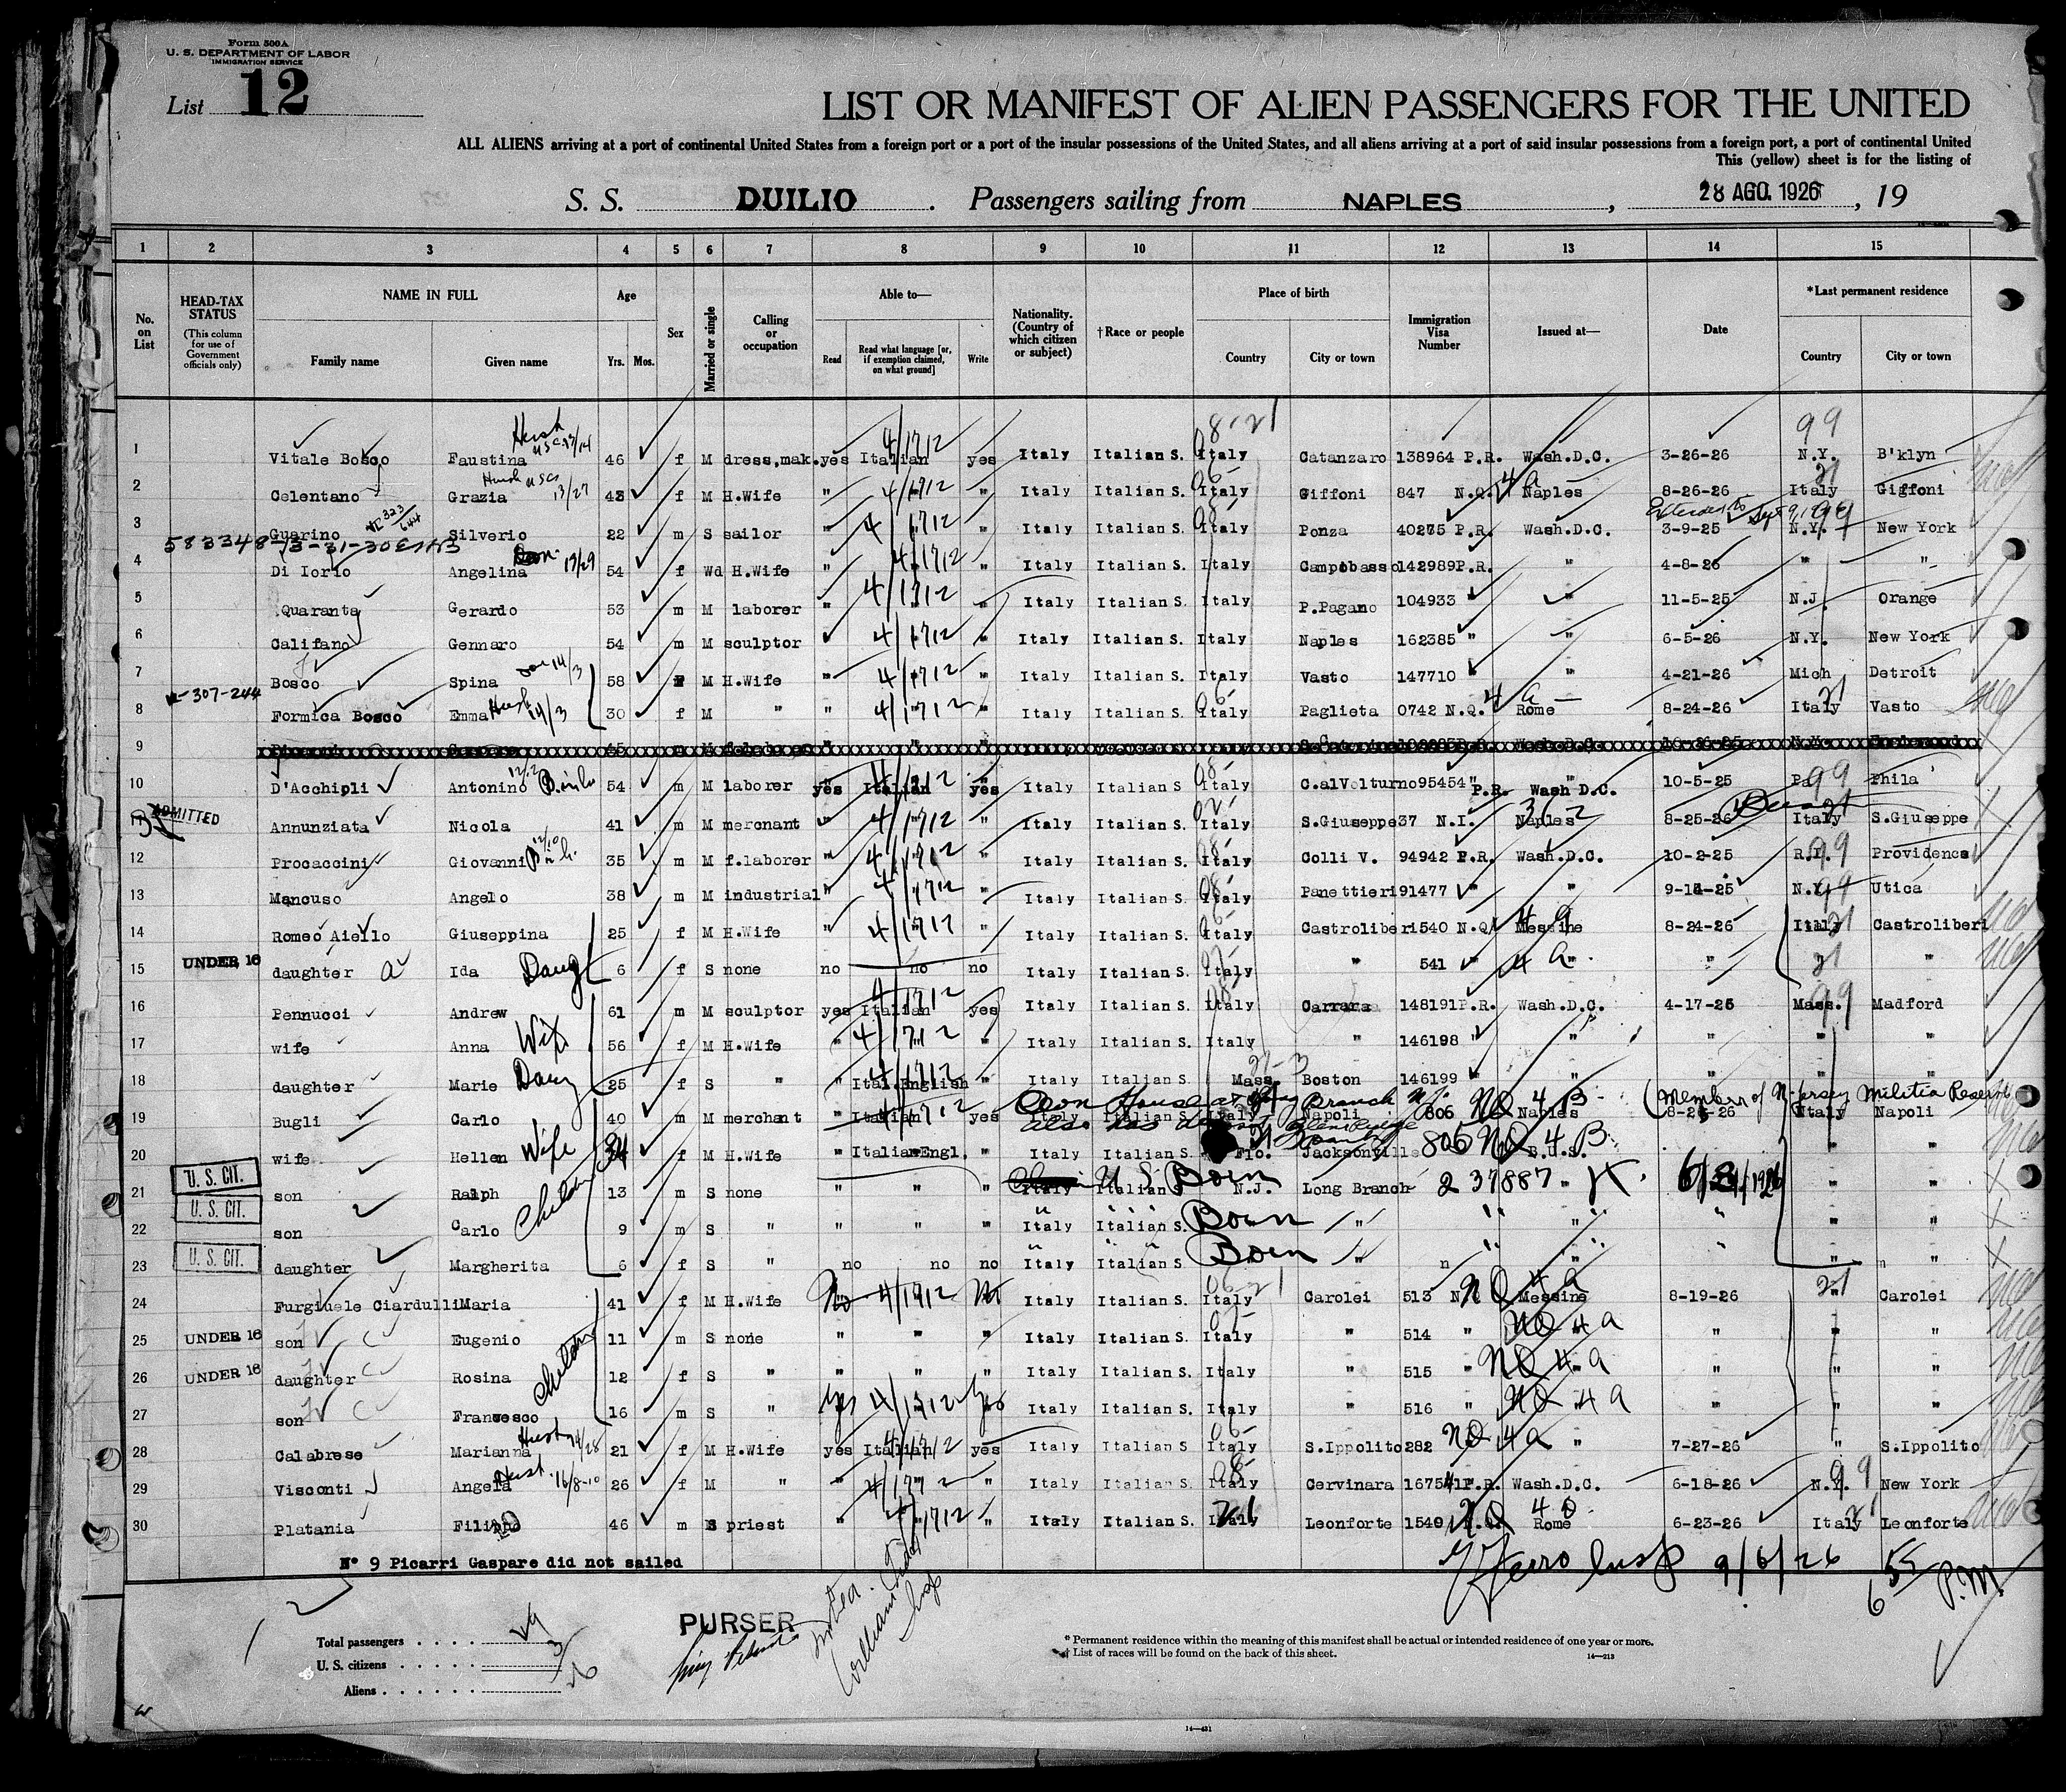 Form 500A
U. S. DEPARTMENT OF LABOR
IMMIGRATION SERVICE
List 12
LIST OR MANIFEST OF ALIEN PASSENGERS FOR THE UNITED
ALL ALIENS arriving at a port of continental United States from a foreign port or a port of the insular possessions of the United States, and all aliens arriving at a port of said insular possessions from a foreign port, a port of continental United
This (yellow) sheet is for the listing of
S. S. DUILIO. Passengers sailing from NAPLES, 28 AGO. 1926, 19
1 2 3 4 5 6 7 8 9 10 11 12 13 14 15
No. on List HEAD-TAX STATUS (This column for use of Government officials only) NAME IN FULL Family name Given name Age Yrs. Mos. Sex Married or single Calling or occupation Able to— Read Read what language [or, if exemption claimed, on what ground] Write Nationality. (Country of which citizen or subject) †Race or people Place of birth Country City or town Immigration Visa Number Issued at— Date *Last permanent residence Country City or town
1 Vitale Bosco Faustina Husb USC 13/14 46 f M dress.mak. yes Italian 4/1712 yes Italy Italian S. Italy 08-21 Catanzaro 138964 P.R. Wash.D.C. 3-26-26 N.Y. 99 B'klyn
2 Celentano Grazia Husb USC 13/27 43 f M H.Wife " 4/1712 " Italy Italian S. Italy Giffoni 847 N.Q. 4a Naples 8-26-26 Italy 21 Giffoni
3 Guarino Silverio 22 m S sailor " 4/1712 " Italy Italian S. Italy Ponza 40275 P.R. Wash.D.C. 3-9-25 N.Y. 99 New York
4 Di Iorio Angelina 13/29 54 f Wd H.Wife " 4/1712 " Italy Italian S. Italy Campobasso 142989P.R. " 4-8-26 " "
5 Quaranta Gerardo 53 m M laborer " 4/1712 " Italy Italian S. Italy P.Pagano 104933 " " 11-5-25 N.J. Orange
6 Califano Gennaro 54 m M sculptor " 4/1712 " Italy Italian S. Italy Naples 162385 " " 6-5-26 N.Y. New York
7 Bosco Spina 14/3 58 M H.Wife " 4/1712 " Italy Italian S. Italy Vasto 147710 " " 4-21-26 Mich Detroit
8 Formica Bosco Emma Husb 14/3 30 f M " " 4/1712 " Italy Italian S. Italy Paglieta 0742 N.Q. 4a Rome 8-24-26 Italy 21 Vasto
9
10 D'Acchioli Antonino 54 m M laborer yes Italian 4/1712 yes Italy Italian S. Italy C.alVolturno 95454 " P.R. Wash D.C. 10-5-25 Pa 99 Phila
11 ADMITTED Annunziata Nicola 41 m M merchant " 4/1712 " Italy Italian S. Italy S.Giuseppe 37 N.I. Naples 8-25-26 Italy S.Giuseppe
12 Procaccini Giovanni 35 m M f.laborer " 4/1712 " Italy Italian S. Italy Colli V. 94942 P.R. Wash.D.C. 10-2-25 R.I. 99 Providence
13 Mancuso Angelo 38 m M industrial " 4/1712 " Italy Italian S. Italy Panettieri 91477 " " 9-14-25 N.Y. 99 Utica
14 Romeo Aiello Giuseppina 25 f M H.Wife " 4/1712 " Italy Italian S. Italy Castroliberi 540 N.Q. 4a Messine 8-24-26 Italy 21 Castroliberi
15 UNDER 16 daughter Ida Daug 6 f S none no no no Italy Italian S. Italy " 541 " 4a " " 21 "
16 Pennucci Andrew 61 m M sculptor yes Italian 4/1712 yes Italy Italian S. Italy Carrara 148191P.R. Wash.D.C. 4-17-26 Mass. 99 Madford
17 wife Anna Wife 56 f M H.Wife " 4/1712 " Italy Italian S. Italy " 146198 " " " " "
18 daughter Marie Daug 25 f S " " Ital.English 4/1712 " Italy Italian S. Mass 21-3 Boston 146199 " " " " "
Own House at Long Branch N.J. (Member of N Jersey Militia Reserve
19 Bugli Carlo 40 m M merchant " Italian 4/1712 yes Italy Italian S. Italy Napoli 806 NQ 4 B Naples 8-26-26 Italy Napoli
20 wife Hellen Wife 34 f M H.Wife " Italian Engl. " Italy Italian S. Flo. Jacksonville 805 NQ 4 B " "
21 U. S. CIT. son Ralph 13 m S none " " " Italy Italian S. U S Born N.J. Long Branch 237887 " " "
22 U. S. CIT. son Carlo Children 9 m S " " " " Italy Italian S. Born " " " " " "
23 U. S. CIT. daughter Margherita 6 f S " no no no Italy Italian S. Born " " " " "
24 Furgiuele Ciardulli Maria 41 f M H.Wife No 4/1712 No Italy Italian S. Italy Carolei 513 NQ 4a Messine 8-19-26 " 21 Carolei
25 UNDER 16 son Eugenio 11 m S none " " " Italy Italian S. Italy " 514 " NQ 4a " " "
26 UNDER 16 daughter Rosina Children 12 f S " " " " Italy Italian S. Italy " 515 " NQ 4a " " "
27 son Francesco 16 m S " Yes 4/1712 Yes Italy Italian S. Italy " 516 " NQ 4a " " "
28 Calabrese Marianna Husb 14/28 21 f M H.Wife yes Italian 4/1712 yes Italy Italian S. Italy S.Ippolito 282 NQ 4a " 7-27-26 " S.Ippolito
29 Visconti Angela Husb. 16/8-10 26 f M " " 4/1712 " Italy Italian S. Italy Cervinara 167541P.R. Wash.D.C. 6-18-26 N.Y. 99 New York
30 Platania Filippo 46 m S priest " 4/1712 " Italy Italian S. Italy Leonforte 1540 NQ Rome 6-23-26 Italy 21 Leonforte
N° 9 Picarri Gaspare did not sailed
9/6/26 6 55 P.M.
PURSER
Total passengers . . . . 29
U. S. citizens . . . . . 3
Aliens . . . . . . 26
* Permanent residence within the meaning of this manifest shall be actual or intended residence of one year or more.
† List of races will be found on the back of this sheet.
14—213
14—431